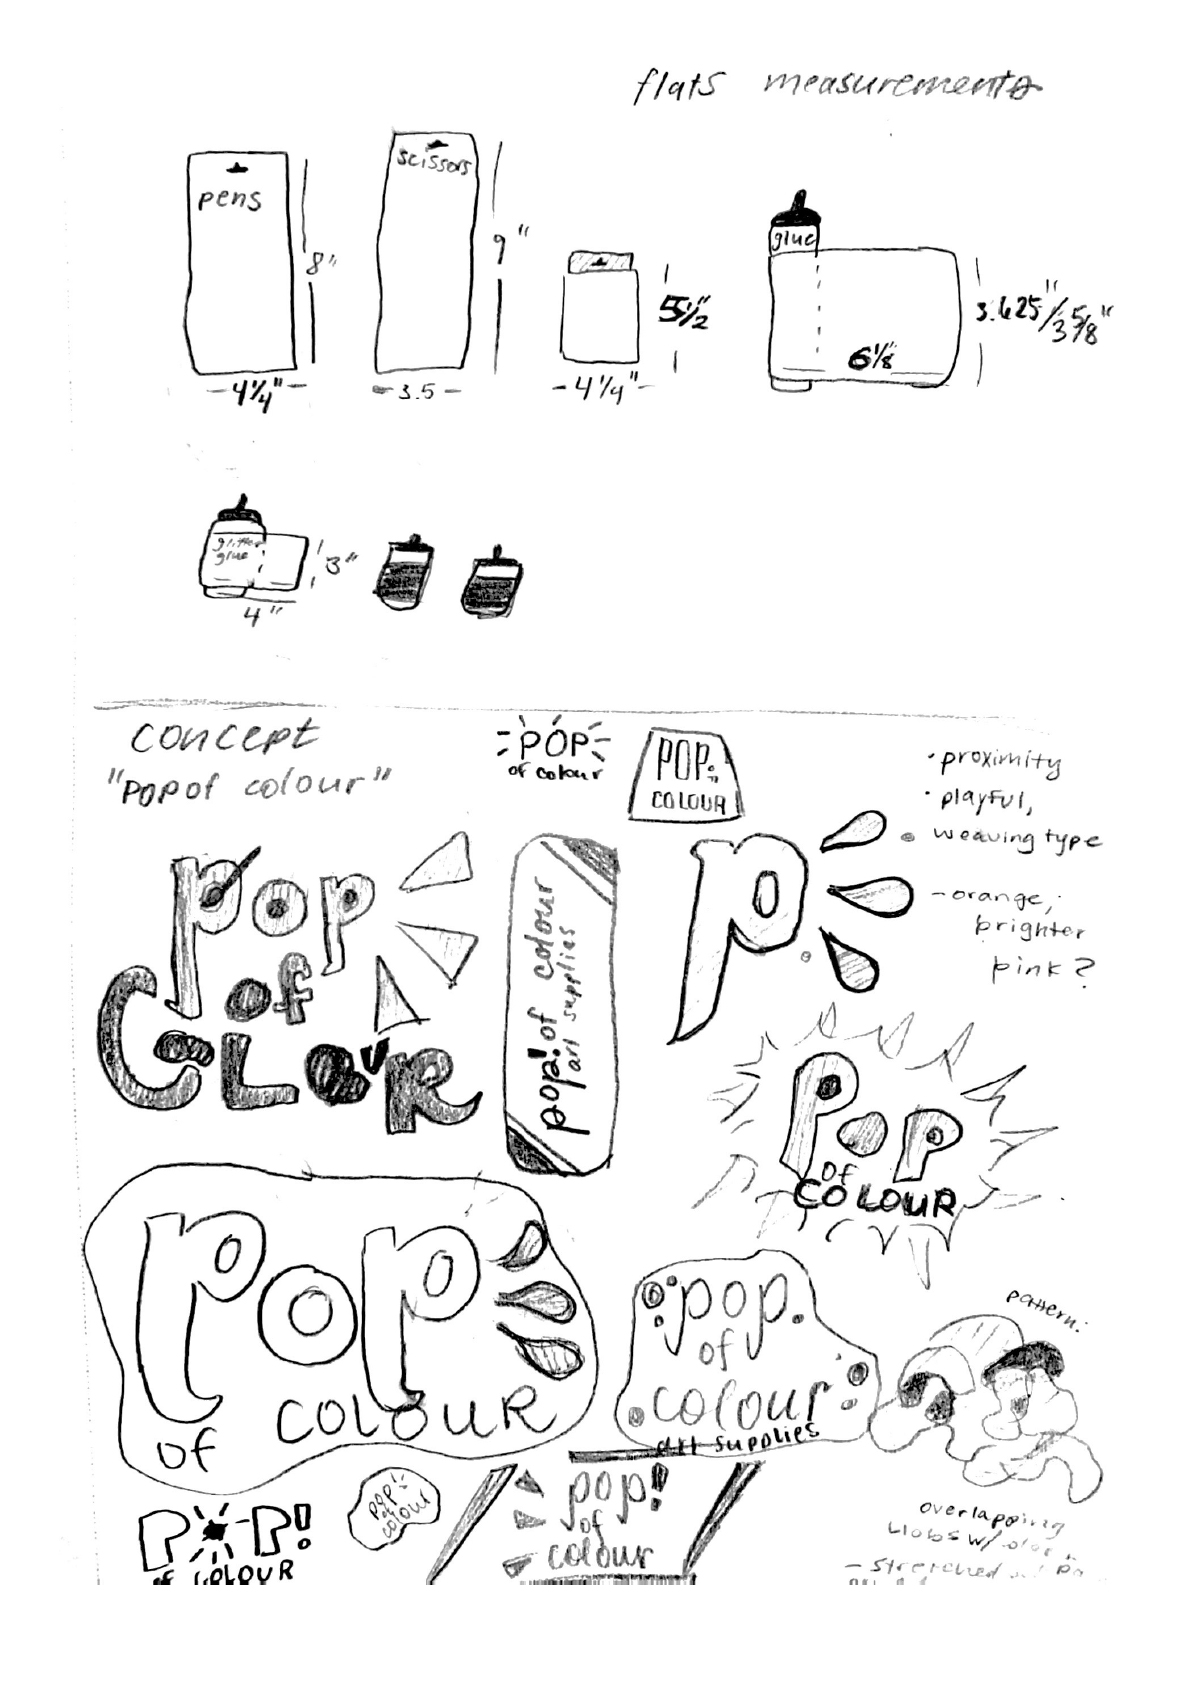 flats measurements
pens
8"
4 1/4"
scissors
9"
3.5
5 1/2"
4 1/4"
glue
3.625"/3 5/8"
6 1/8"
glitter
glue
3"
4"
concept
"pop of colour"
POP
of colour
POP.
COLOUR
• proximity
• playful,
• weaving type
- orange,
brighter
pink?
pop
of
COLOUR
pop! of colour
art supplies
p
POP
of
COLOUR
pop
of
COLOUR
pop.
of
colour
art supplies
pattern:
overlapping
blobs w/
- stretched
POP!
of COLOUR
pop!
of
colour
pop!
of
colour